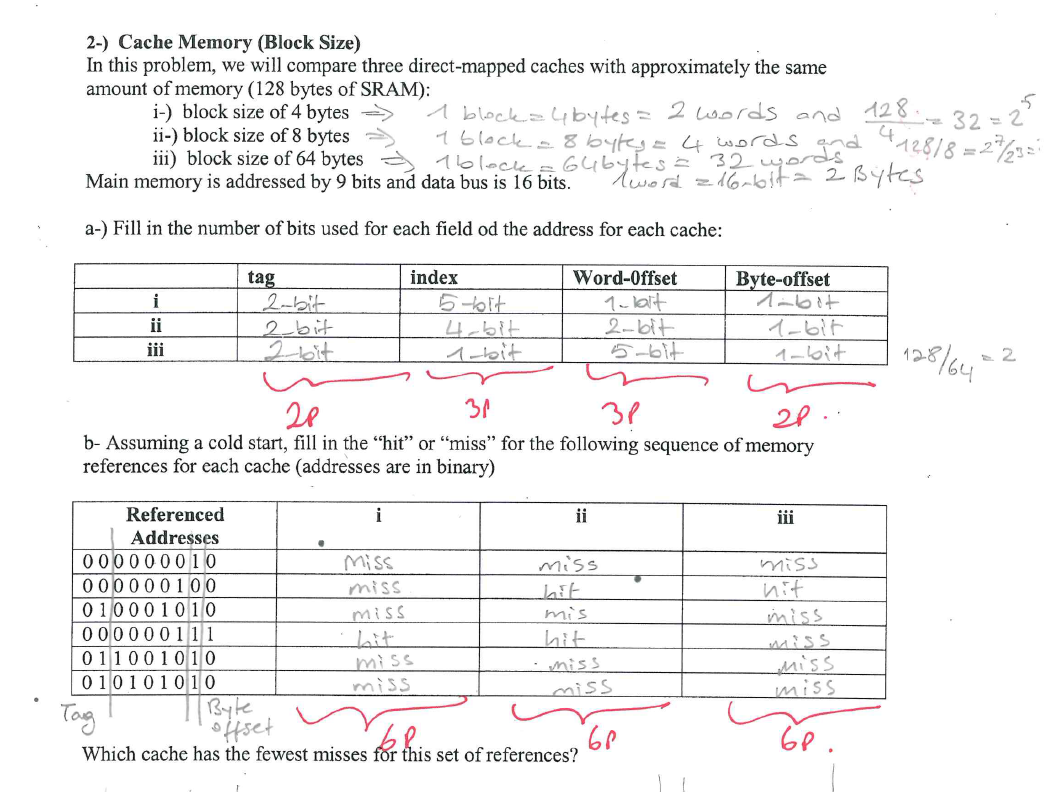 2-) Cache Memory (Block Size)
In this problem, we will compare three direct-mapped caches with approximately the same
amount of memory (128 bytes of SRAM):
i-) block size of 4 bytes => 1 block = 4 bytes = 2 words and 128/4 = 32 = 2^5
ii-) block size of 8 bytes => 1 block = 8 bytes = 4 words and 128/8 = 2^7/2^3 =
iii) block size of 64 bytes => 1 block = 64 bytes = 32 words
Main memory is addressed by 9 bits and data bus is 16 bits. 1 word = 16-bit = 2 Bytes
a-) Fill in the number of bits used for each field od the address for each cache:
tag index Word-0ffset Byte-offset
i 2-bit 5-bit 1-bit 1-bit
ii 2-bit 4-bit 2-bit 1-bit
iii 2-bit 1-bit 5-bit 1-bit 128/64 = 2
2P 3P 3P 2P
b- Assuming a cold start, fill in the “hit” or “miss” for the following sequence of memory
references for each cache (addresses are in binary)
Referenced Addresses i ii iii
0 0 0 0 0 0 0 1 0 miss miss miss
0 0 0 0 0 0 1 0 0 miss hit hit
0 1 0 0 0 1 0 1 0 miss mis miss
0 0 0 0 0 0 1 1 1 hit hit miss
0 1 1 0 0 1 0 1 0 miss miss miss
0 1 0 1 0 1 0 1 0 miss miss miss
Tag Byte offset 6P 6P 6P.
Which cache has the fewest misses for this set of references?